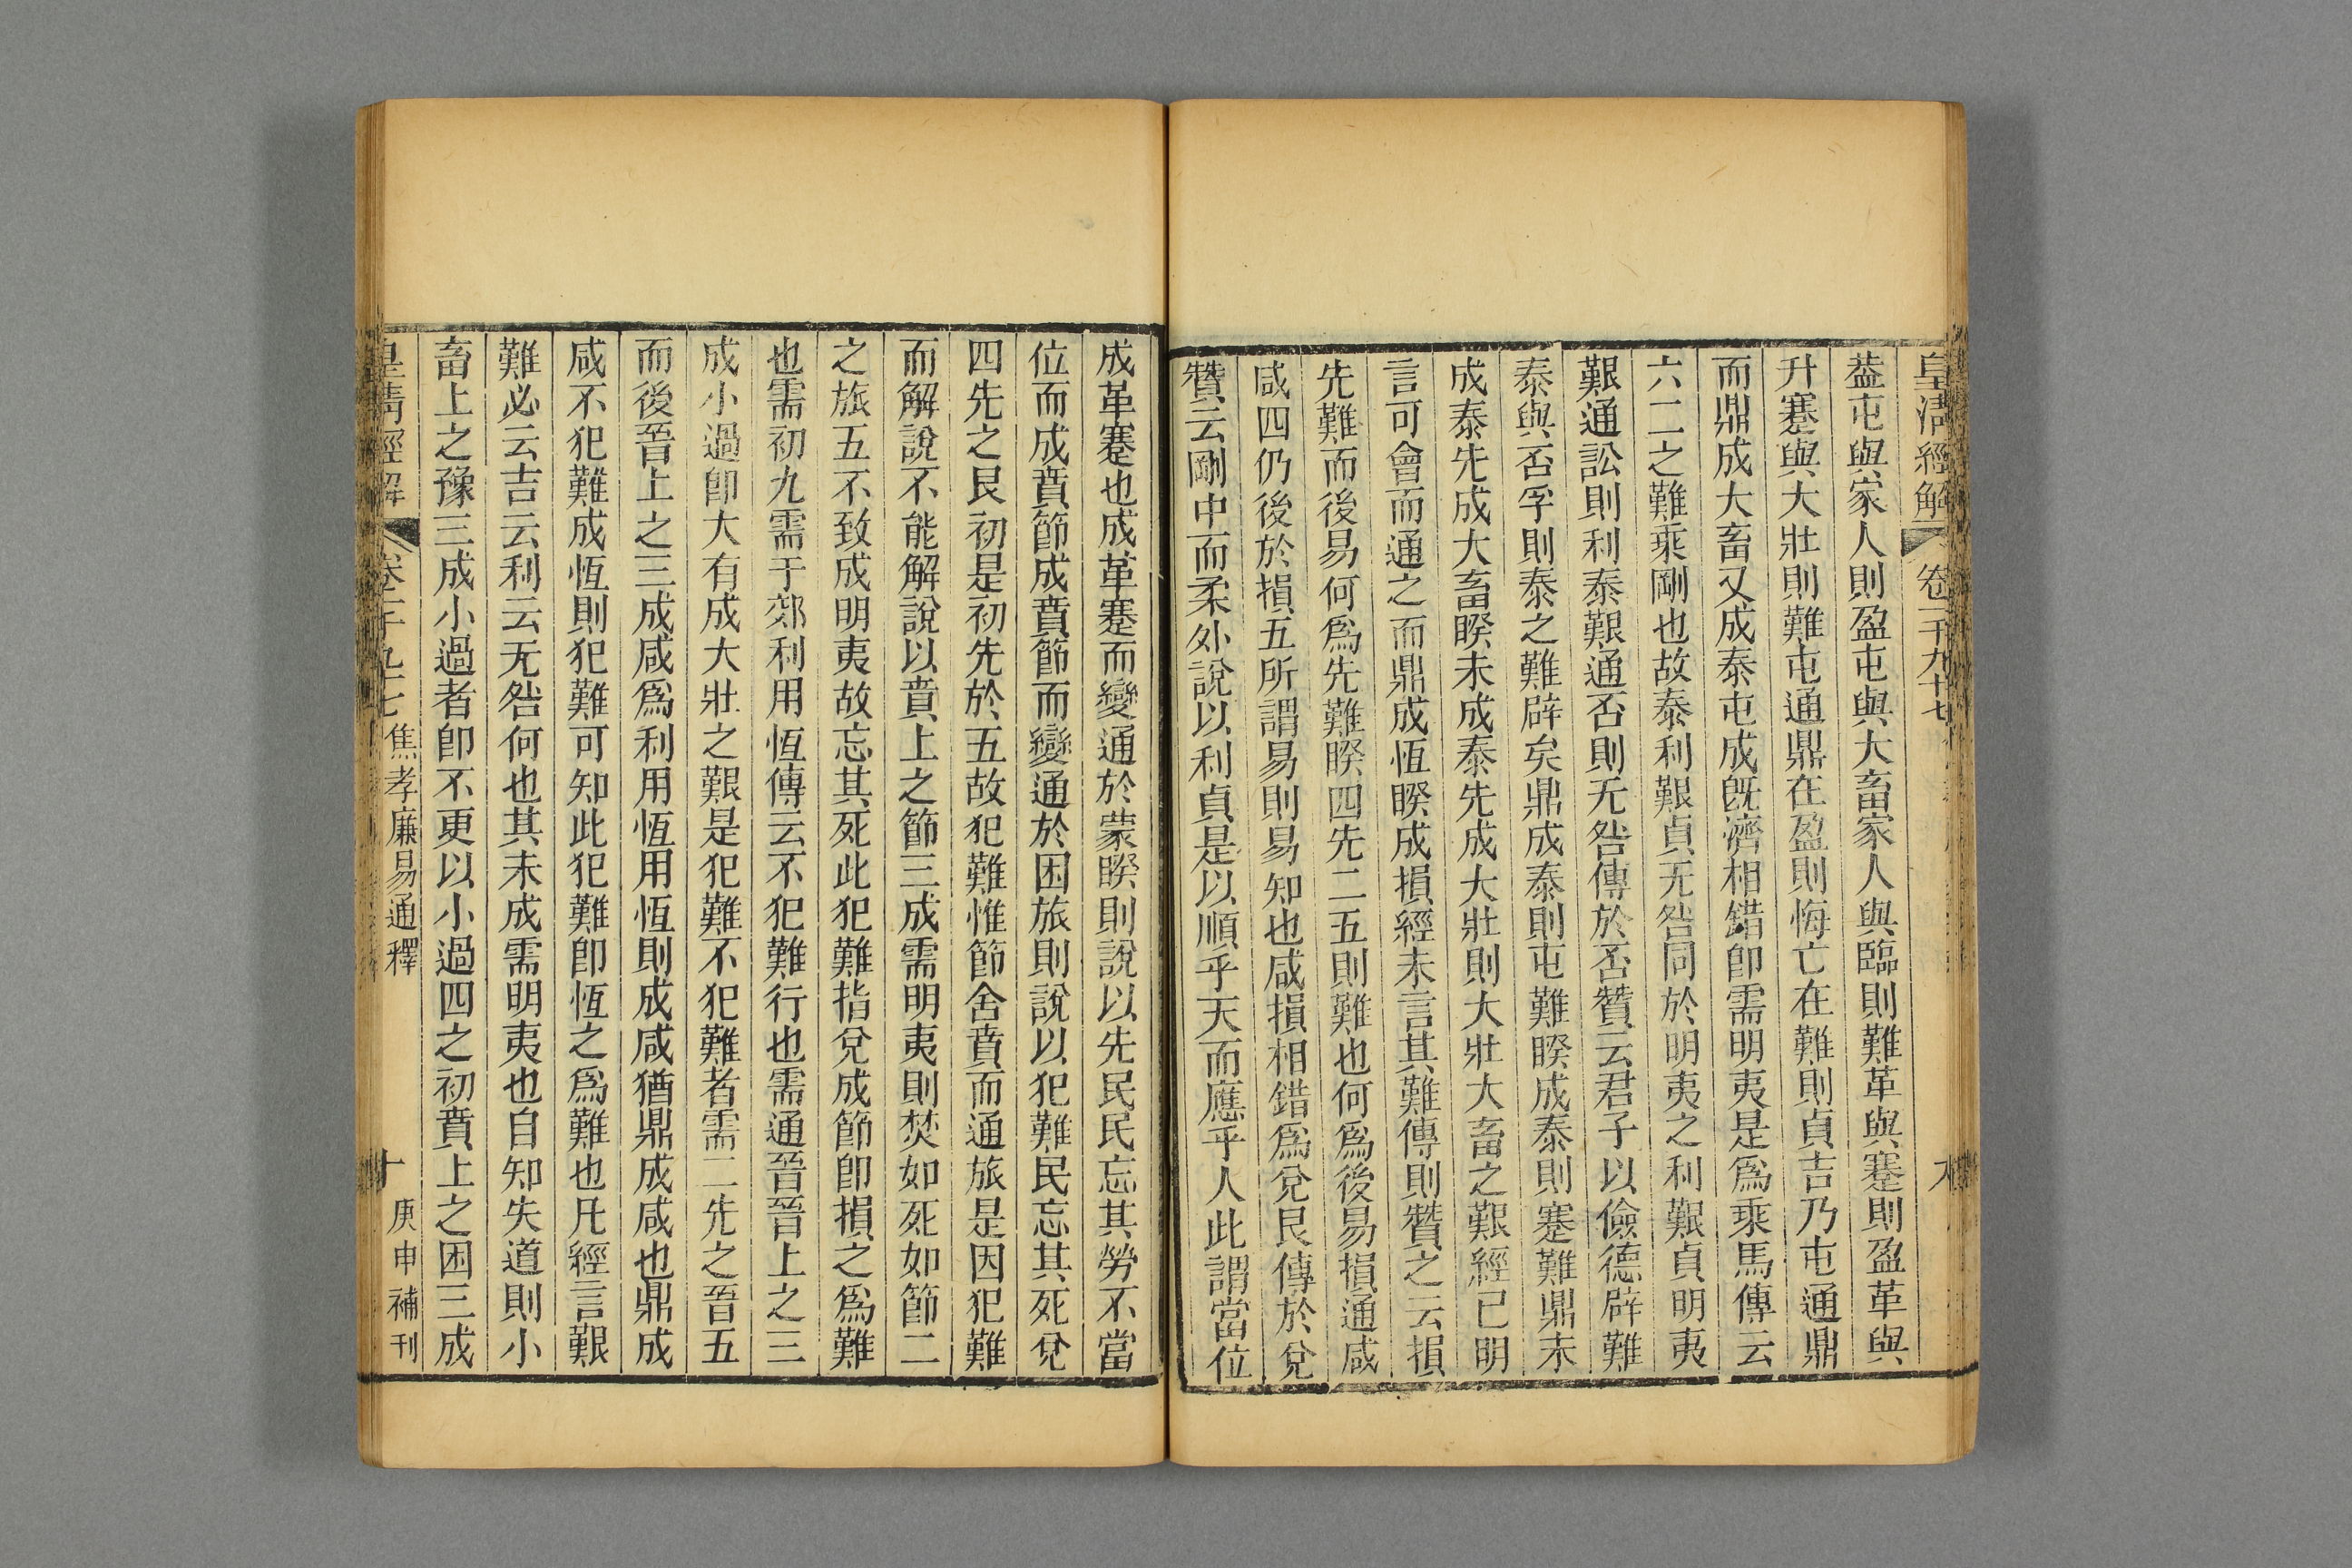 皇清經解 卷一千九十七
葢屯與家人則盈屯與大畜家人與臨則難革與蹇則盈革與
升蹇與大壯則難屯通鼎在盈則悔亡在難則貞吉乃屯通鼎
而鼎成大畜又成泰屯成既濟相錯卽需明夷是爲乘馬傳云
六二之難乘剛也故泰利艱貞无咎同於明夷之利艱貞明夷
艱通訟則利泰艱通否則无咎傳於否贊云君子以儉德辟難
泰與否孚則泰之難辟矣鼎成泰則屯難睽成泰則蹇難鼎未
成泰先成大畜睽未成泰先成大壯則大壯大畜之艱經已明
言可會而通之而鼎成恆睽成損經未言其難傳則贊之云損
先難而後易何爲先難睽四先二五則難也何爲後易損通咸
咸四仍後於損五所謂易則易知也咸損相錯爲兌艮傳於兌
贊云剛中而柔外說以利貞是以順乎天而應乎人此謂當位
成革蹇也成革蹇而變通於蒙睽則說以先民民忘其勞不當
位而成賁節成賁節而變通於困旅則說以犯難民忘其死兌
四先之艮初是初先於五故犯難惟節舍賁而通旅是因犯難
而解說不能解說以賁上之節三成需明夷則焚如死如節二
之旅五不致成明夷故忘其死此犯難指兌成節卽損之爲難
也需初九需于郊利用恆傳云不犯難行也需通晉晉上之三
成小過卽大有成大壯之艱是犯難不犯難者需二先之晉五
而後晉上之三成咸爲利用恆用恆則成咸猶鼎成咸也鼎成
咸不犯難成恆則犯難可知此犯難卽恆之爲難也凡經言艱
難必云吉云利云无咎何也其未成需明夷也自知失道則小
畜上之豫三成小過者卽不更以小過四之初賁上之困三成
皇清經解 卷一千九十七 焦孝廉易通釋 十 庚申補刊